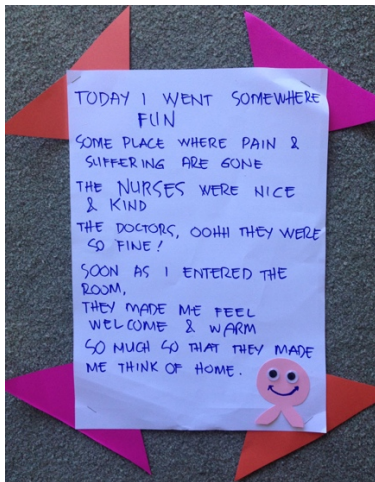 TODAY I WENT SOMEWHERE
FUN
SOME PLACE WHERE PAIN &
SUFFERING ARE GONE
THE NURSES WERE NICE
& KIND
THE DOCTORS, OOHH THEY WERE
SO FINE!
SOON AS I ENTERED THE
ROOM,
THEY MADE ME FEEL
WELCOME & WARM
SO MUCH SO THAT THEY MADE
ME THINK OF HOME.